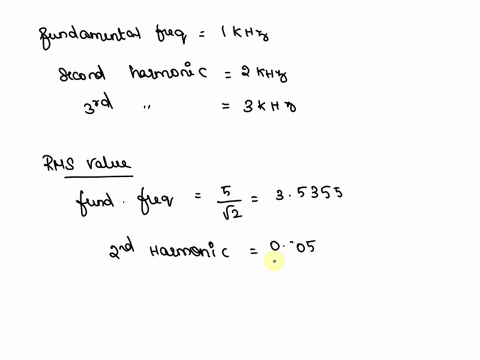 fundamental freq = 1 KHz
second harmonic = 2 KHz
3rd " = 3 KHz
RMS value
fund. freq = 5/√2 = 3.5355
2nd Harmonic =